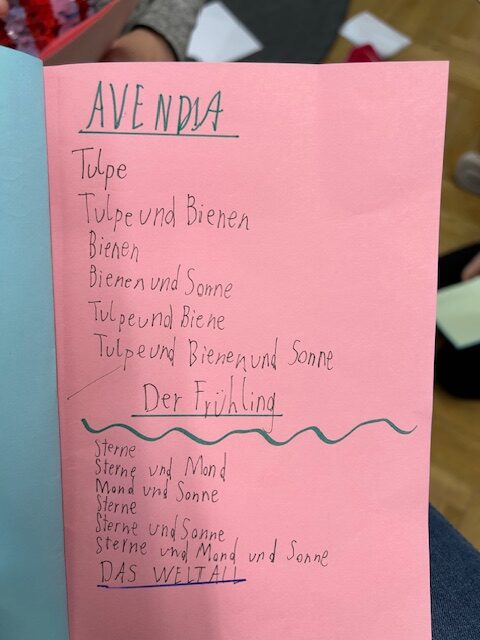 AVENDIA
Tulpe
Tulpe und Bienen
Bienen
Bienen und Sonne
Tulpe und Biene
Tulpe und Bienen und Sonne
Der Frühling
Sterne
Sterne und Mond
Mond und Sonne
Sterne
Sterne und Sonne
Sterne und Mond und Sonne
DAS WELTALL